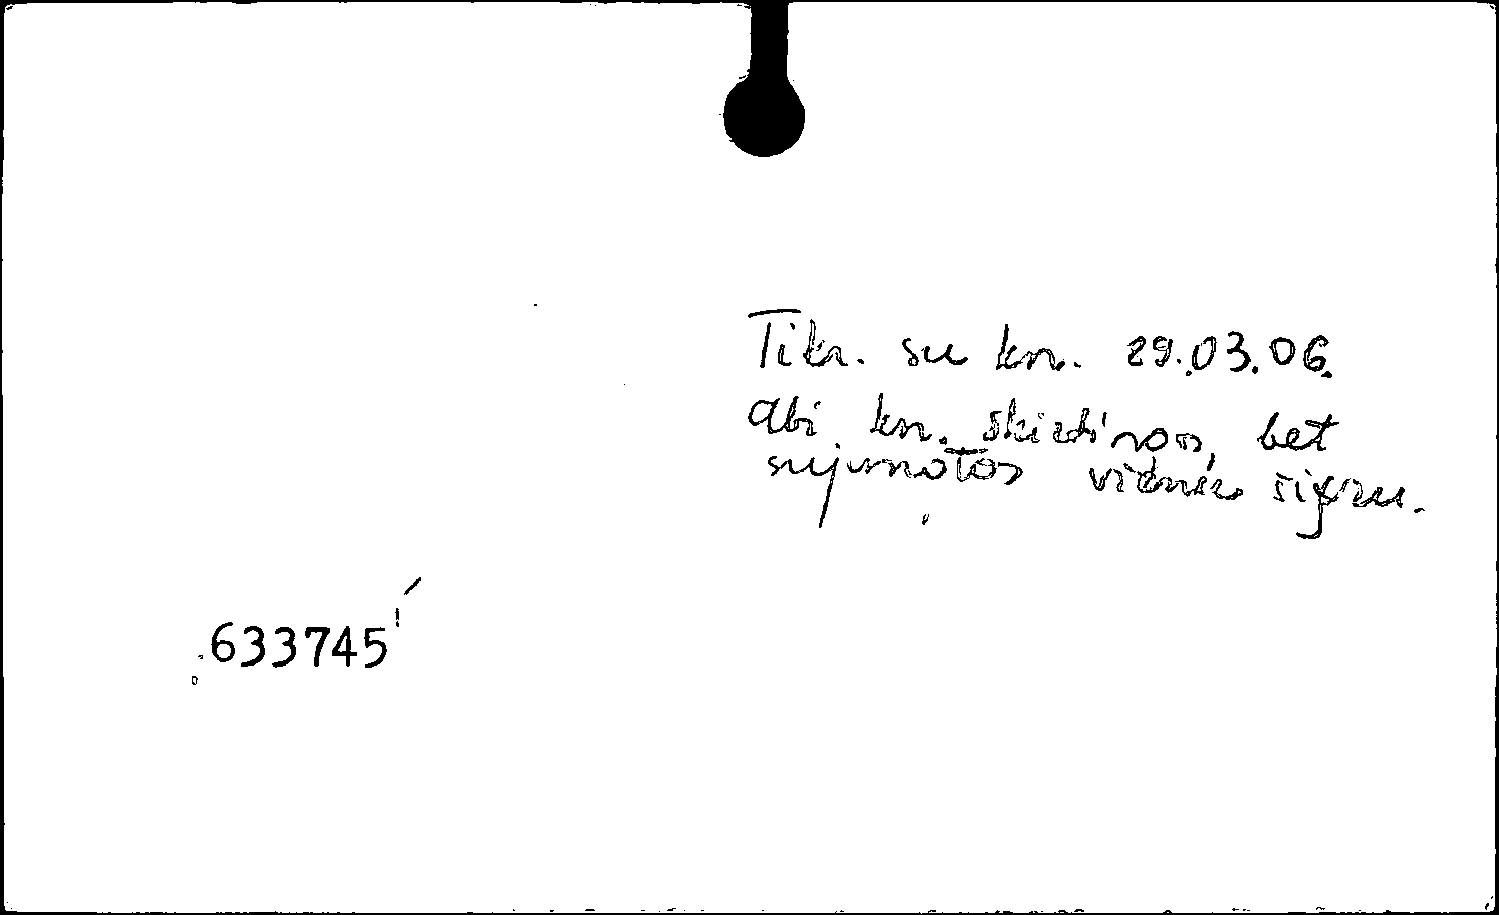 Tikr. su kn. 29.03.06.
Abi kn. skirtinos, bet
sujungtos vienu šifru.
633745